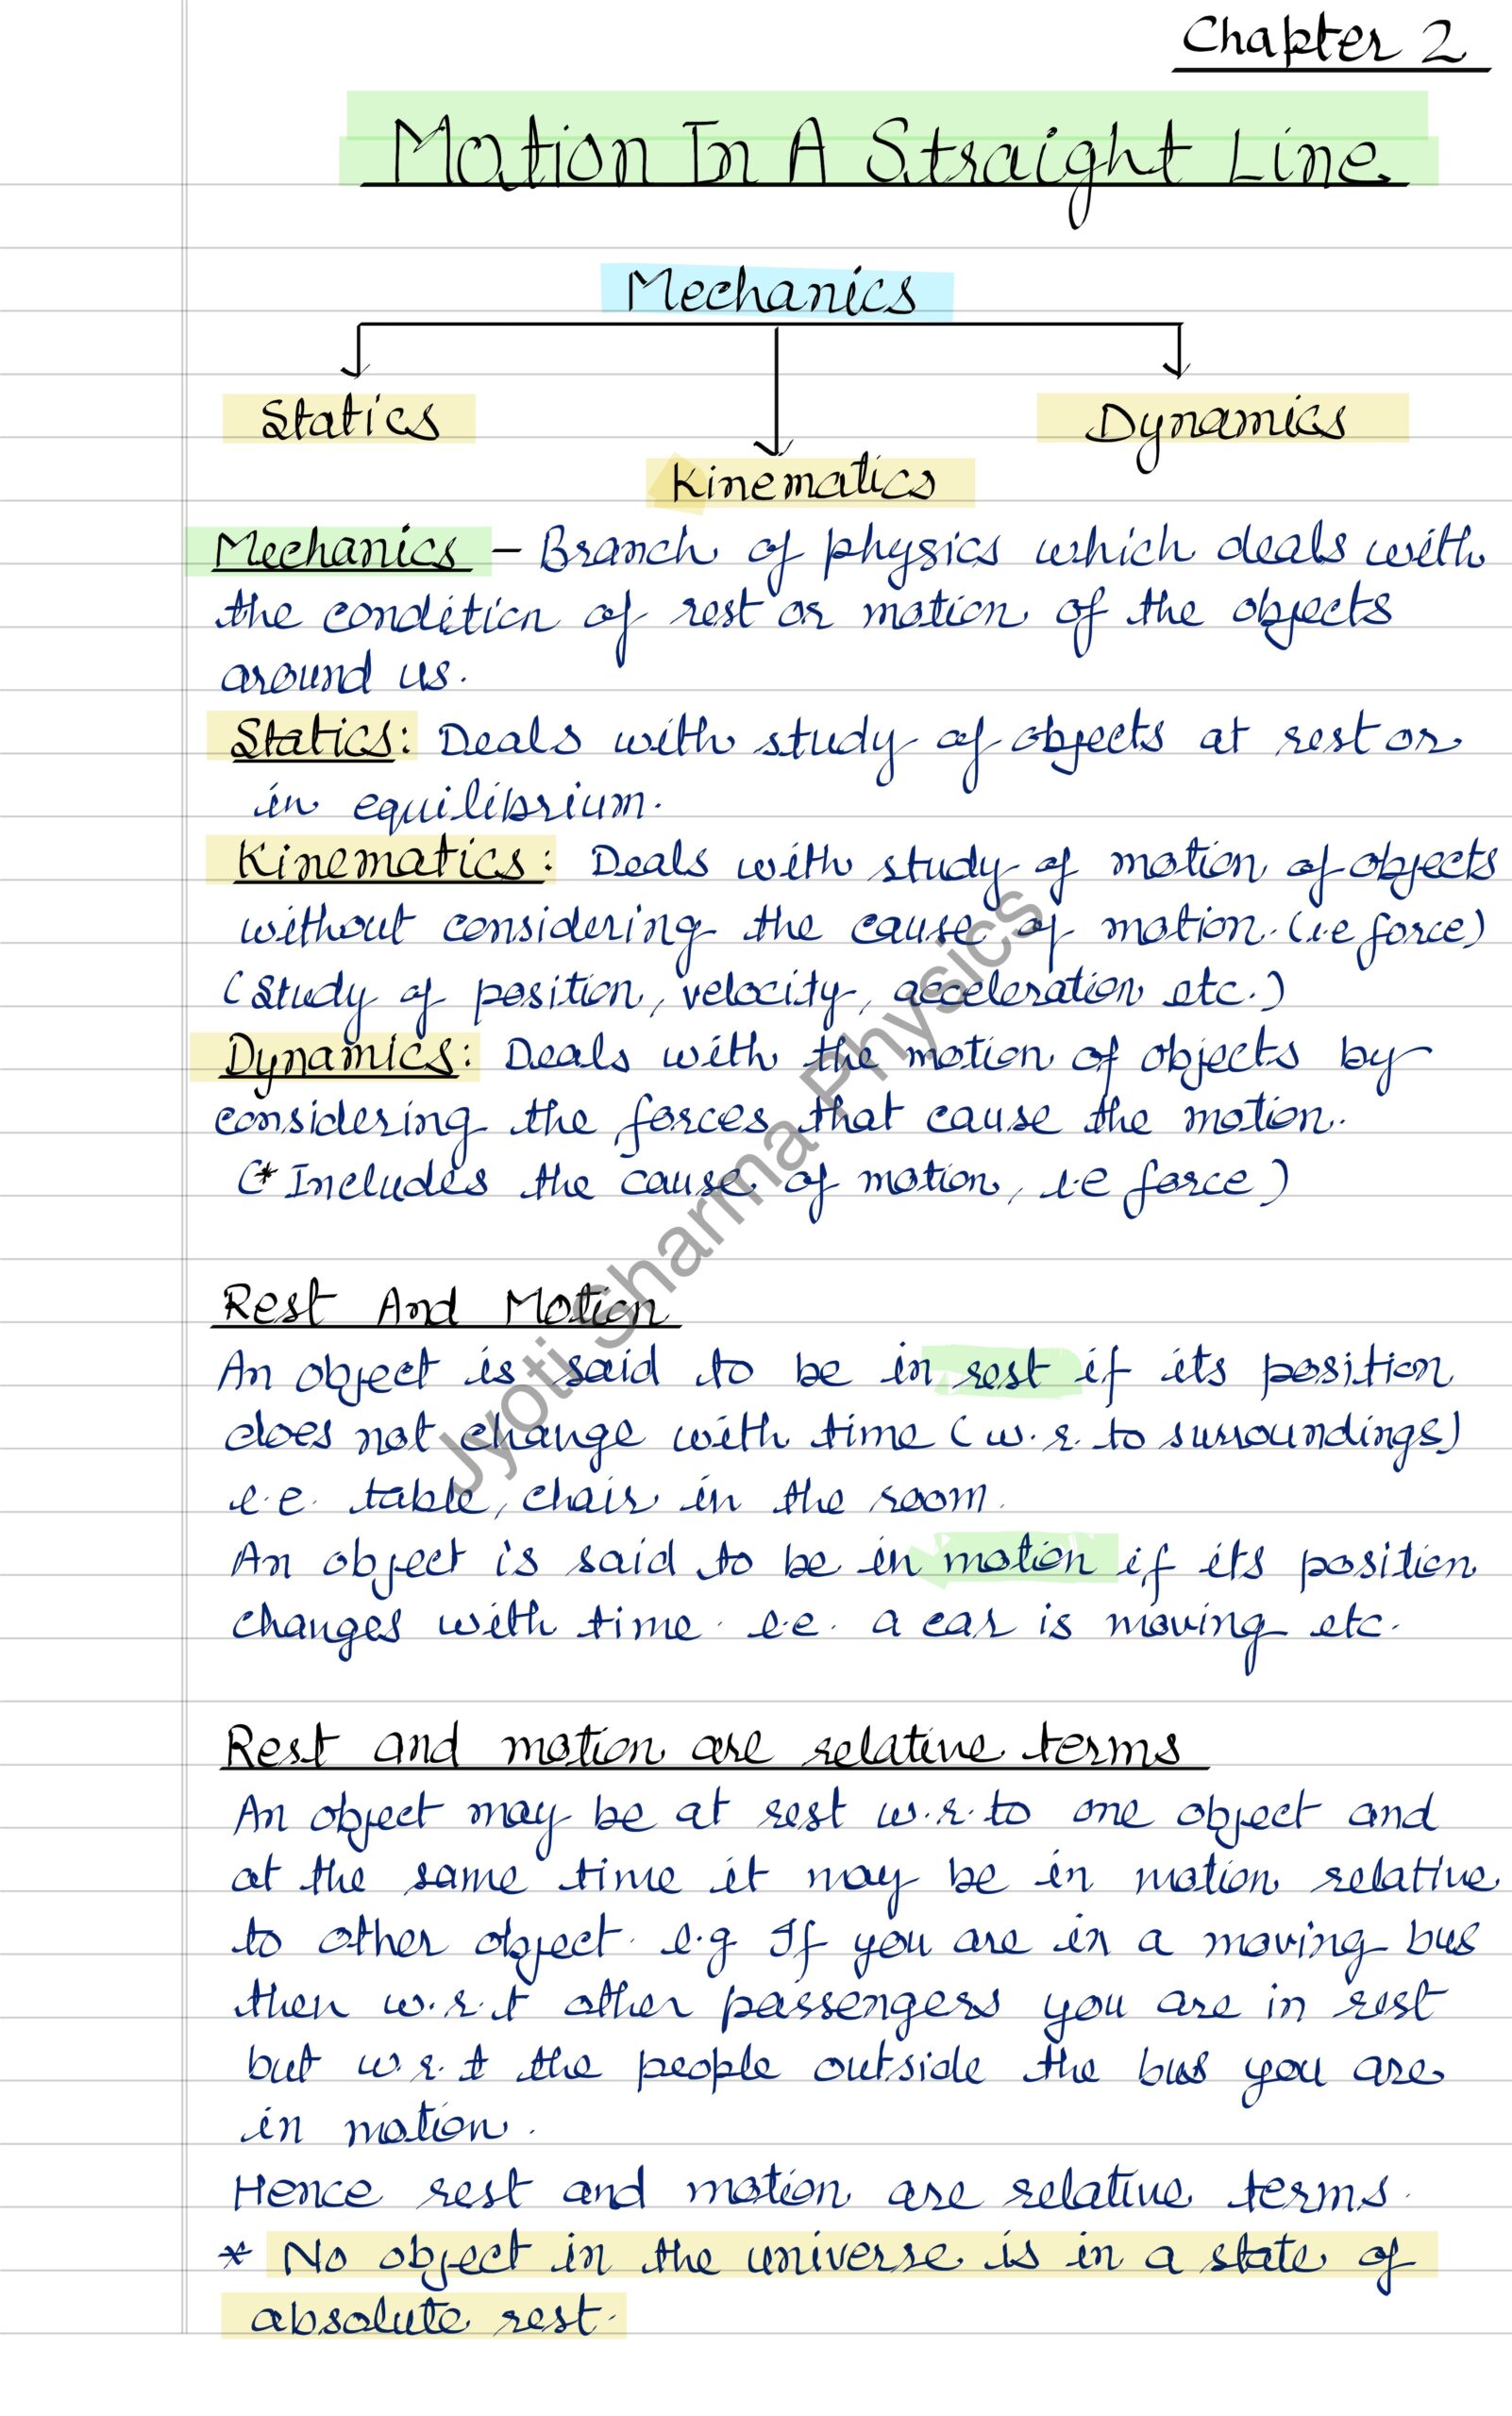 Chapter 2
Motion In A Straight Line
Mechanics
Statics
Dynamics
Kinematics
Mechanics - Branch of physics which deals with
the condition of rest or motion of the objects
around us.
Statics: Deals with study of objects at rest or
in equilibrium.
Kinematics: Deals with study of motion of objects
without considering the cause of motion. (i.e force)
(Study of position, velocity, acceleration etc.)
Dynamics: Deals with the motion of objects by
considering the forces that cause the motion.
(* Includes the cause of motion, i.e force)
Rest And Motion
An object is said to be in rest if its position
does not change with time (w.r. to surroundings)
i.e. table, chair in the room.
An object is said to be in motion if its position
changes with time. i.e. a car is moving etc.
Rest and motion are relative terms
An object may be at rest w.r.to one object and
at the same time it may be in motion relative
to other object. e.g If you are in a moving bus
then w.r.t other passengers you are in rest
but w.r.t the people outside the bus you are
in motion.
Hence rest and motion are relative terms.
* No object in the universe is in a state of
absolute rest.
Jyoti Sharma Physics